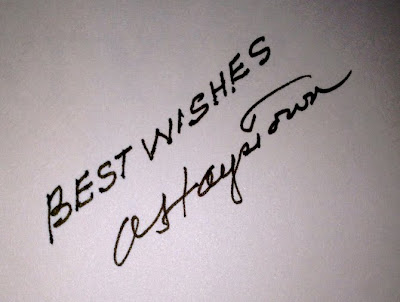 BEST WISHES
A Hays Town